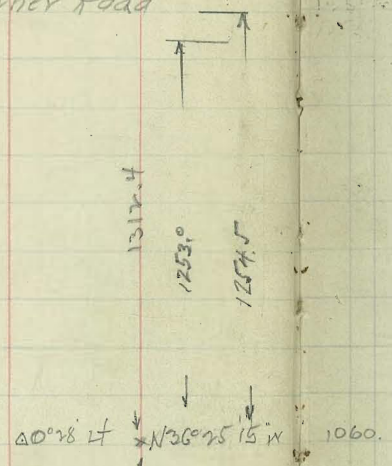 Road
1312.4
1253.0
1254.5
Δ0°28' Lt N36°25'15"W 1060.